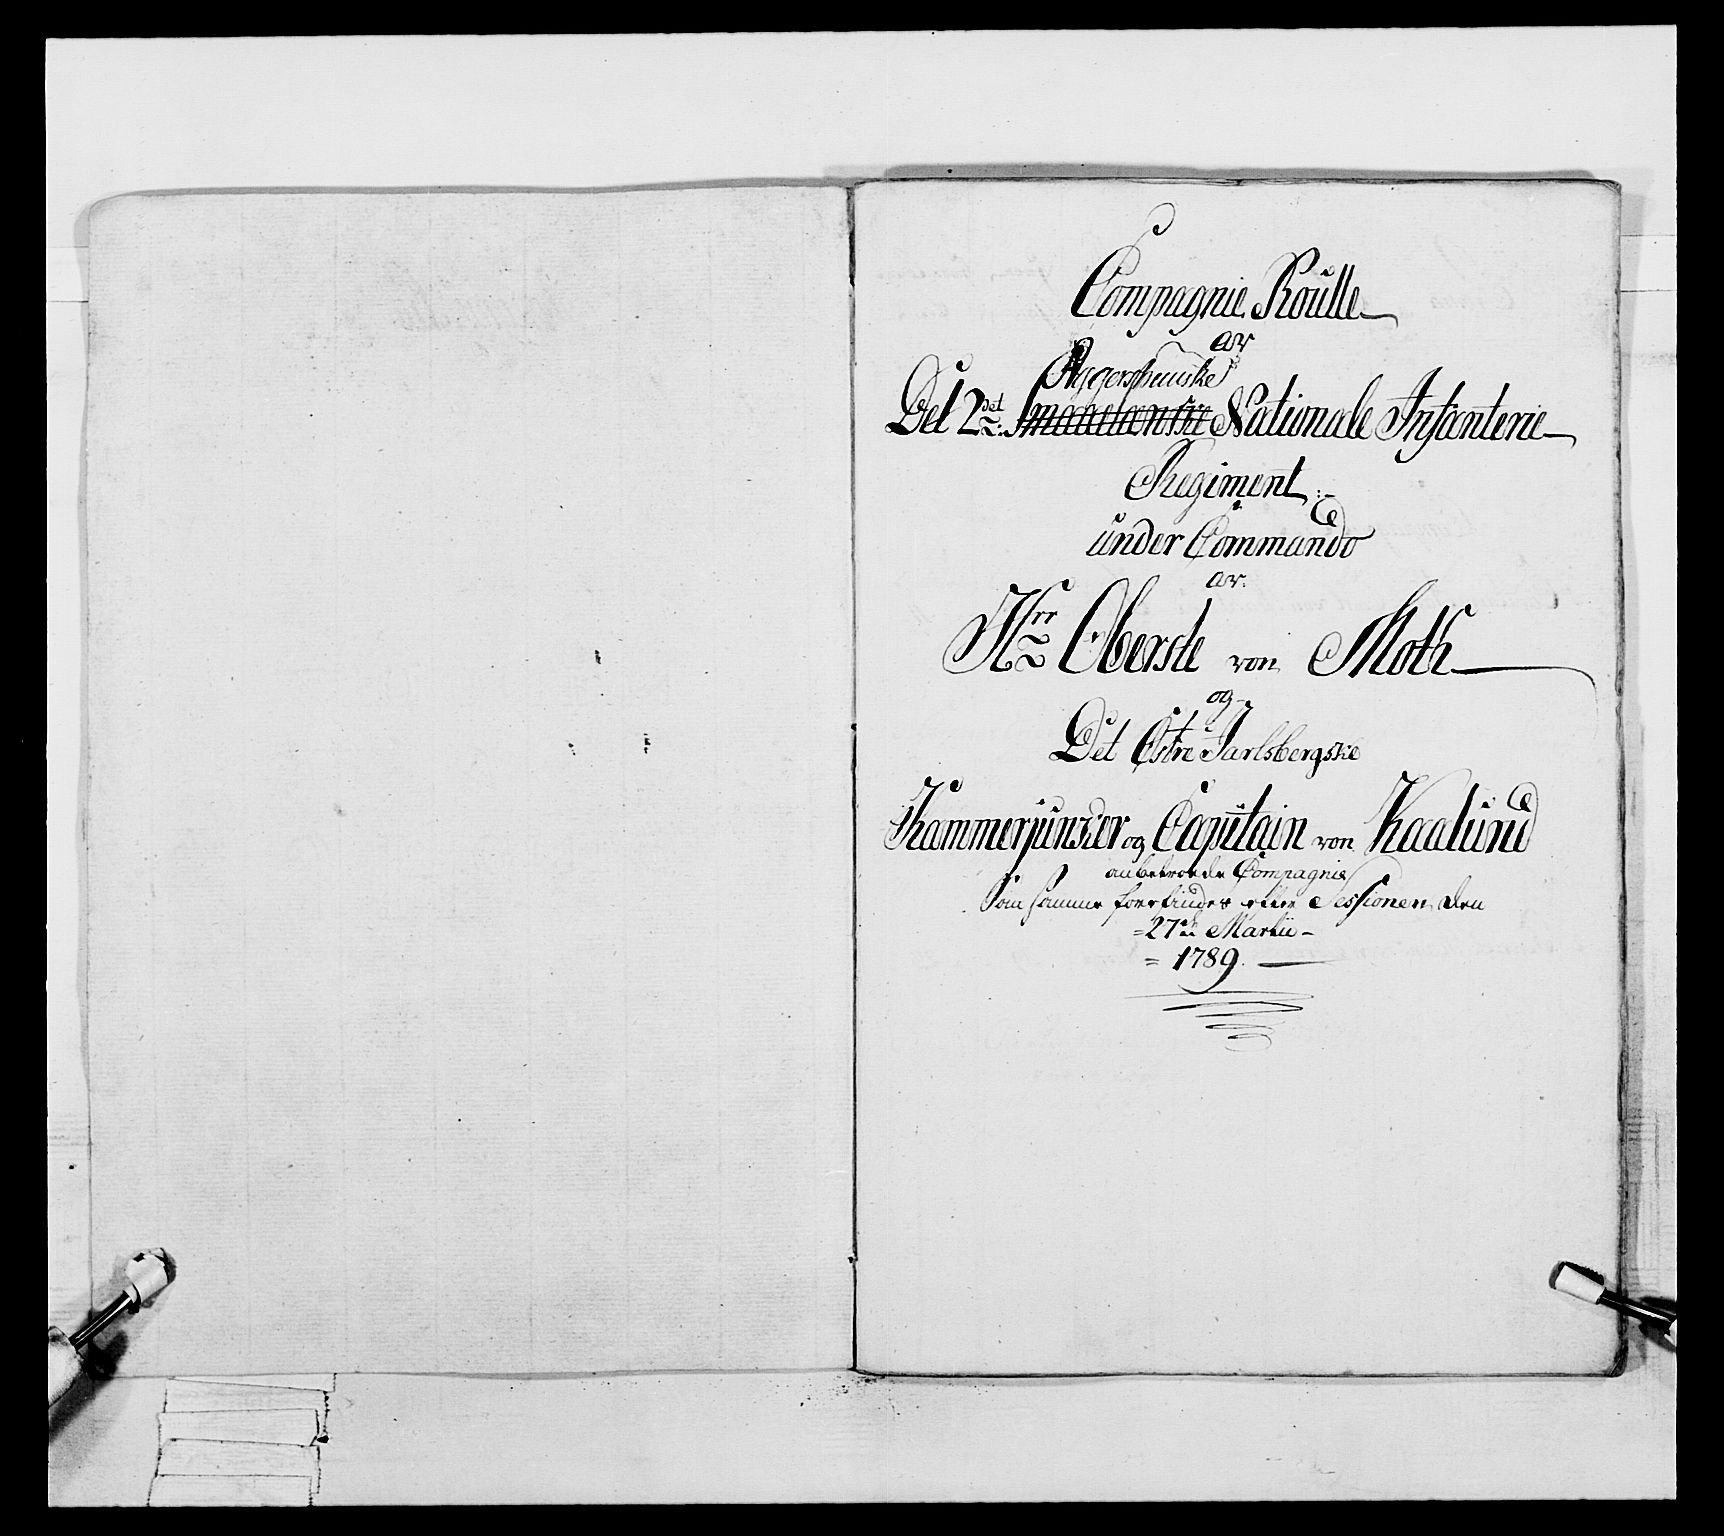 Compagnie Roulle
av
Aggershuuske
Det 2det Smaalenske Nationale Infanterie
Regiment
under Commando
av
Hrr Oberste von Moth
og
Det Østre Jarlsbergske
Kammerjunker og Capitain von Kaalund
anbetroede Compagnie
Som samme forefindes efter Sessionen den
27de Martii
1789.